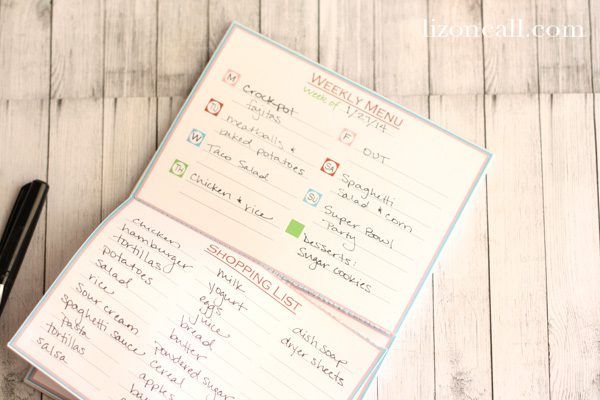 lizoncall.com
WEEKLY MENU
Week of 1/27/14
M
Crockpot
fajitas
TU
meatballs &
baked potatoes
W
Taco Salad
TH
Chicken & rice
F
OUT
SA
Spaghetti
Salad & corn
SU
Super Bowl
Party
desserts:
Sugar cookies
SHOPPING LIST
chicken
hamburger
tortillas
potatoes
salad
rice
sour cream
spaghetti sauce
Pasta
tortillas
salsa
milk
yogurt
eggs
juice
bread
butter
powdered sugar
cereal
apples
dish soap
dryer sheets